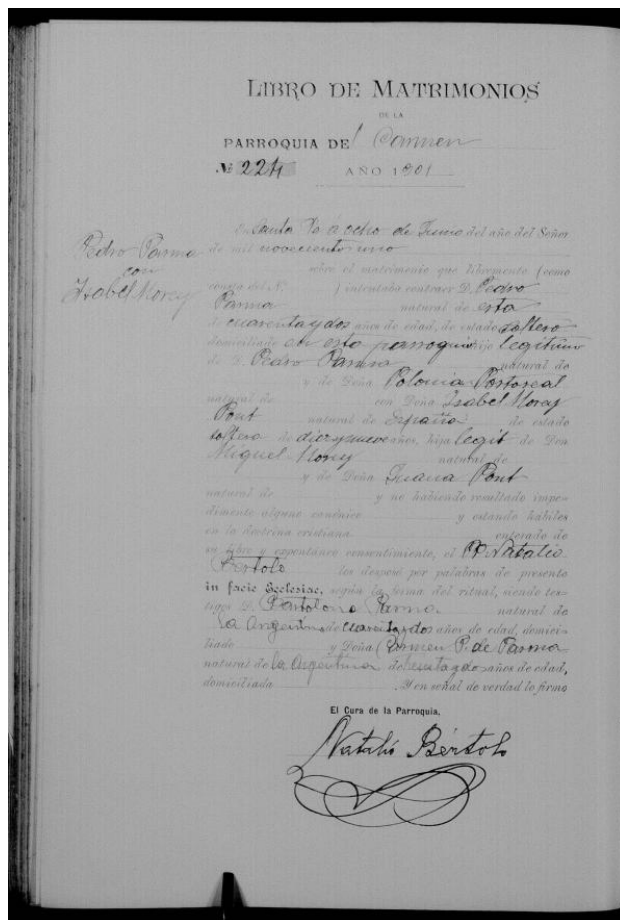 LIBRO DE MATRIMONIOS
DE LA
PARROQUIA DEl Carmen
Nº 224 AÑO 1901
Pedro Parma
con
Isabel Morey
En Santa Fe á ocho de Junio del año del Señor
de mil novecientos uno
sobre el matrimonio que libremente (como
consta del N. ) intentaba contraer D. Pedro
Parma natural de esta
de cuarentaydos años de edad, de estado soltero
domiciliado en esta parroquia hijo legitimo
de D. Pedro Parma natural de
y de Doña Polonia Portoreal
natural de con Doña Isabel Morey
Pont natural de España de estado
soltera de diez y nueve años, hija legit de Don
Miguel Morey natural de
y de Doña Juana Pont
natural de y no habiendo resultado impe-
dimento alguno canónico y estando hábiles
en la doctrina cristiana. enterado de
su libre y espontáneo consentimiento, el P. Natalio
Bertolo los desposé por palabras de presente
in facie Ecclesiae, según la forma del ritual, siendo tes-
tigos D. Bartolomé Parma natural de
la Argentina de cuarentaydos años de edad, domici-
liado y Doña Carmen P. de Parma
natural de la Argentina de años de edad,
domiciliada . Y en señal de verdad lo firmo
El Cura de la Parroquia,
Natalio Bértolo